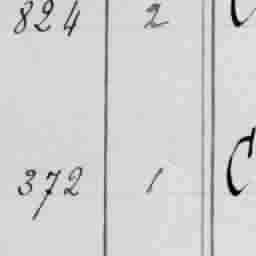 824 2 C
372 1 C